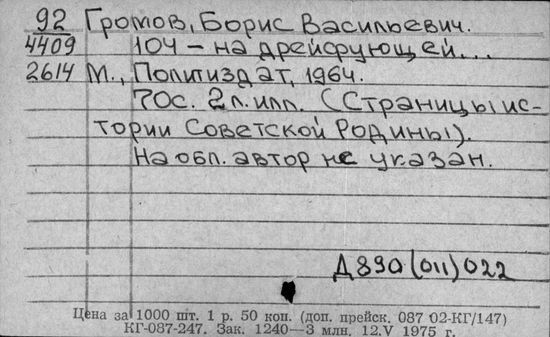 92 Громов, Борис Васильевич.
4409 104 – на дрейфующей...
2614 М., Политиздат, 1964.
70с. 2л. илл. (Страницы ис-
тории Советской Родины).
На обл. автор не указан.
Д890(011)022
Цена за 1000 шт. 1 р. 50 коп. (доп. прейск. 087 02-КГ/147)
КГ-087-247. Зак. 1240—3 млн. 12.V 1975 г.